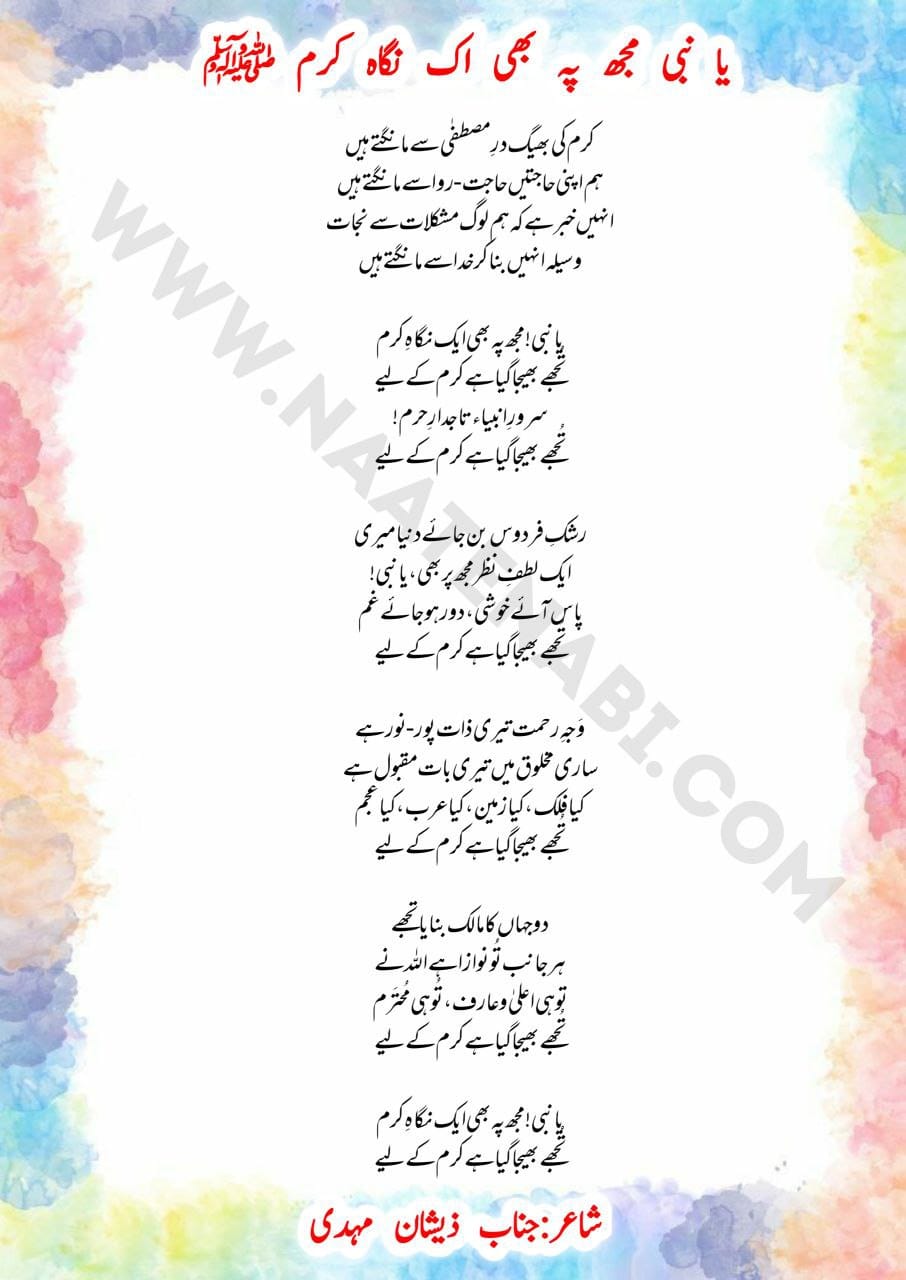 یا نبی مجھ پہ بھی اک نگاہ کرم ﷺ
کرم کی بھیگ درِ مصطفٰی سے مانگتے ہیں
ہم اپنی حاجتیں حاجت-روا سے مانگتے ہیں
انہیں خبر ہے کہ ہم لوگ مشکلات سے نجات
وسیلہ انہیں بنا کر خدا سے مانگتے ہیں
یا نبی! مجھ پہ بھی ایک نگاہِ کرم
تُجھے بھیجا گیا ہے کرم کے لیے
سرورِ انبیاء تاجدارِ حرم!
تُجھے بھیجا گیا ہے کرم کے لیے
رشکِ فردوس بن جائے دنیا میری
ایک لطفِ نظر مجھ پر بھی، یا نبی!
پاس آئے خوشی، دور ہو جائے غم
تُجھے بھیجا گیا ہے کرم کے لیے
وَجہِ رحمت تیری ذات پور-نور ہے
ساری مخلوق میں تیری بات مقبول ہے
کیا فلک، کیا زمین، کیا عرب، کیا عجم
تُجھے بھیجا گیا ہے کرم کے لیے
دو جہاں کا مالک بنایا تجھے
ہر جانب تُو نوازا ہے اللہ نے
تو ہی اعلیٰ و عارف، تُو ہی مُحترَم
تُجھے بھیجا گیا ہے کرم کے لیے
یا نبی! مجھ پہ بھی ایک نگاہِ کرم
تُجھے بھیجا گیا ہے کرم کے لیے
شاعر:جناب ذیشان مہدی
WWW.NAATENABI.COM